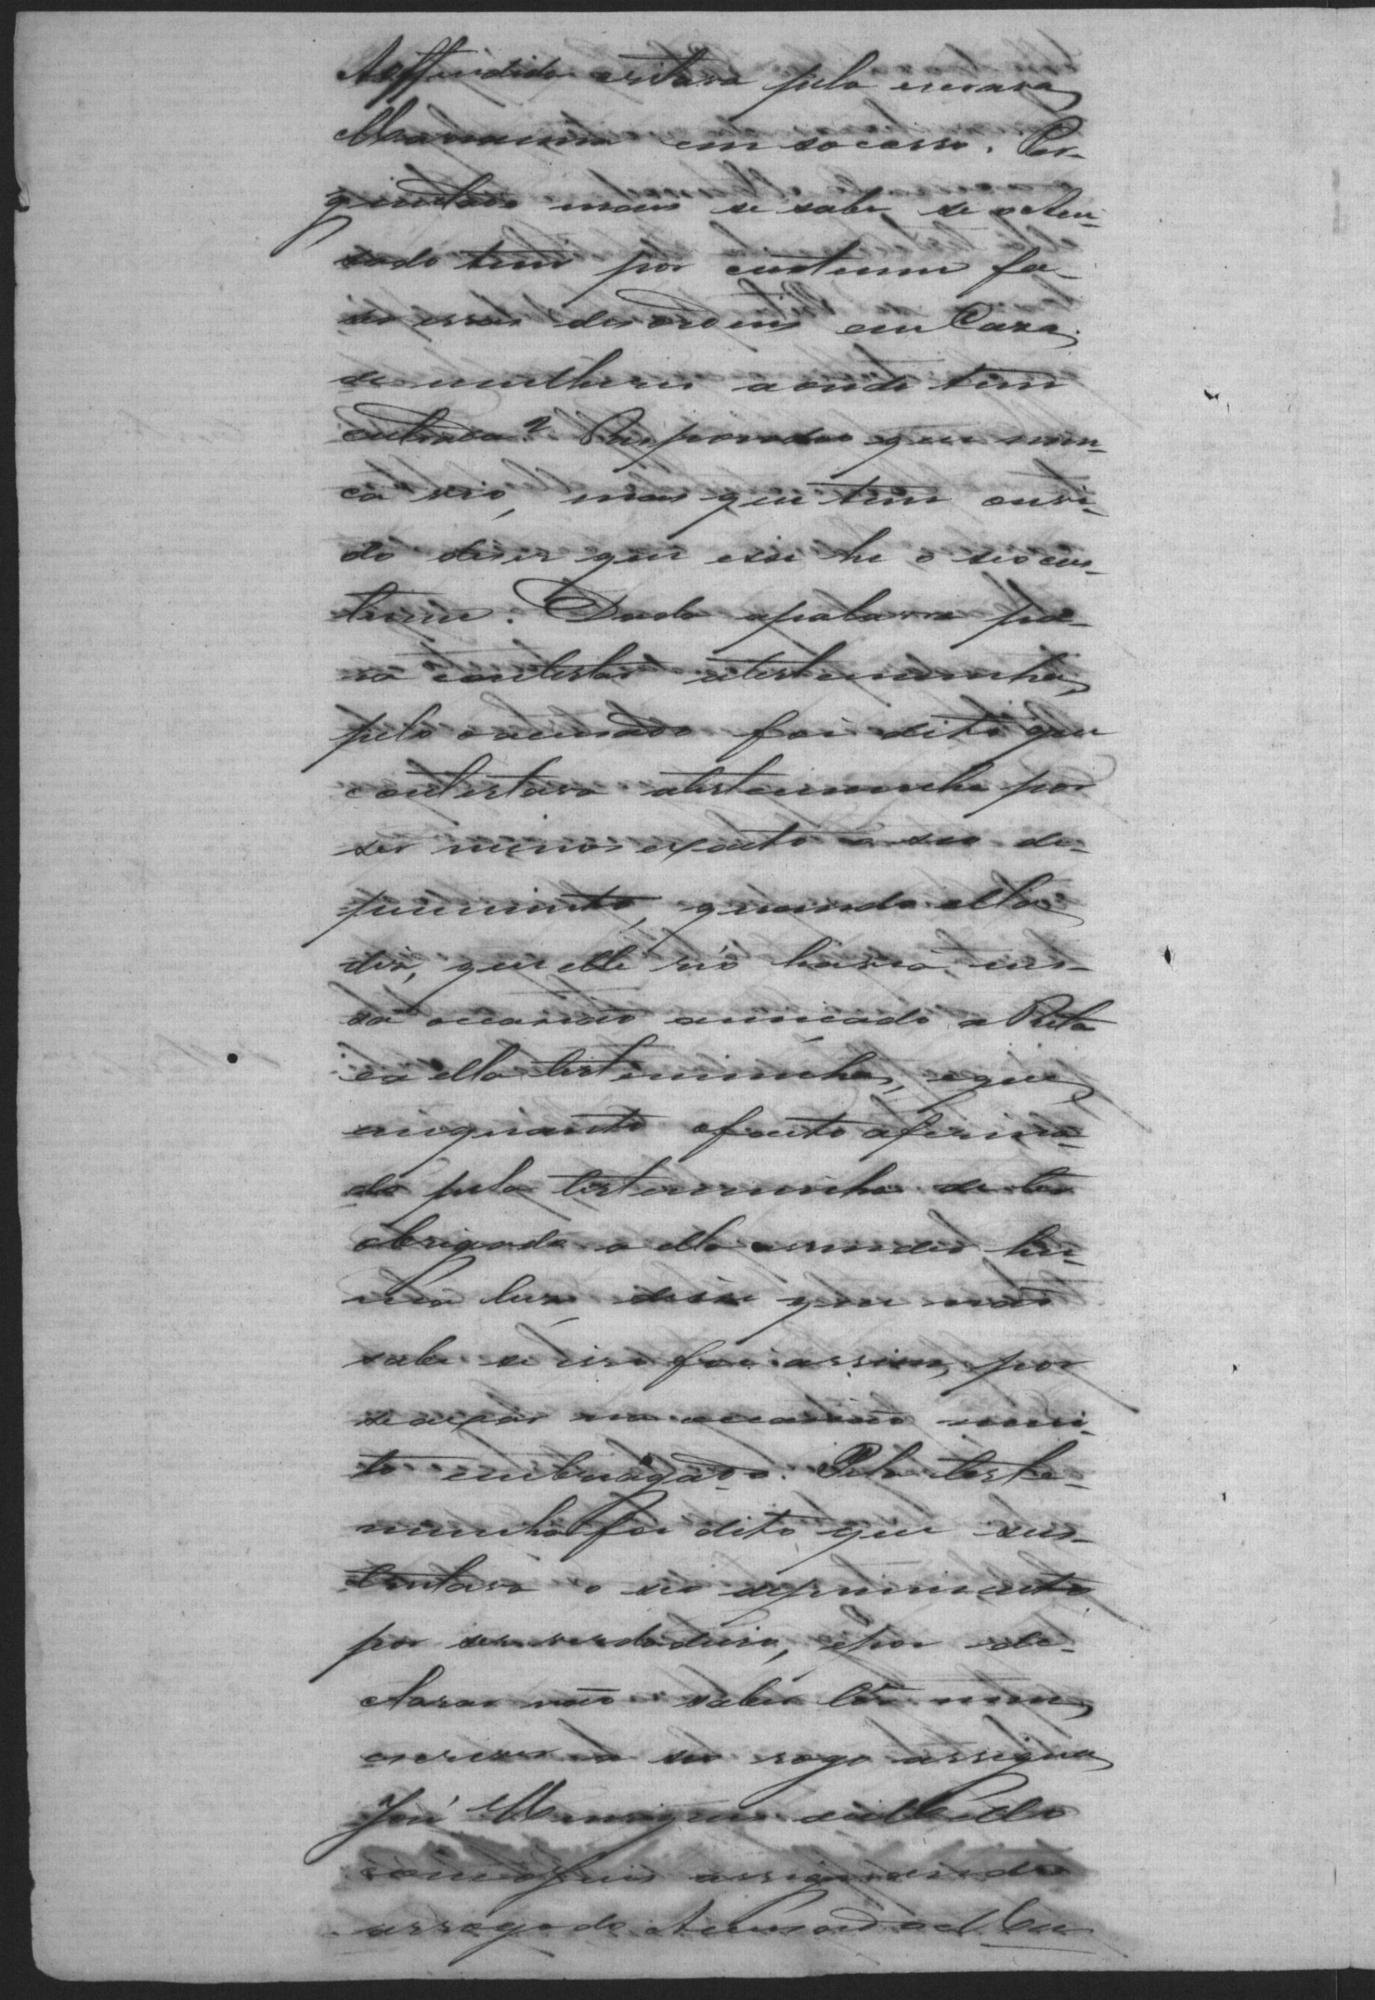 Affendida gritava pela escrava
Marianna em socorro. Per-
guntado mais se sabe se o Acu-
sado tem por custume fa-
ser essas desordens em Caza
de mulheres aonde tem
entrada? Respondeo que nun-
ca vio, mas que tem ouvi-
do diser que esse he o seo cus-
tume. Dada apalavra pa-
ra contestar atestemunha,
pelo accusado foi dito que
contestava atestemunha por
ser menos exacto o seo de-
puimento, quando ella
diz, que elle réo havia, nes-
sa occasião a Rita
e a ella testemunha, e que
enquanto o facto afirma-
do pela testemunha de ter
obrigado a ella acender hu-
ma lus, disse que não
sabe se isso foi assim, por
se achar na occasião mui-
to embriagado. Pela teste-
munha foi dito que sus-
tentava o seo depuimento
por ser verdadeiro, e por de-
clarar não saber ler nem
escrever a seo rogo assigna
José de Mello
com o Juis assignando
arrogo do Accusado